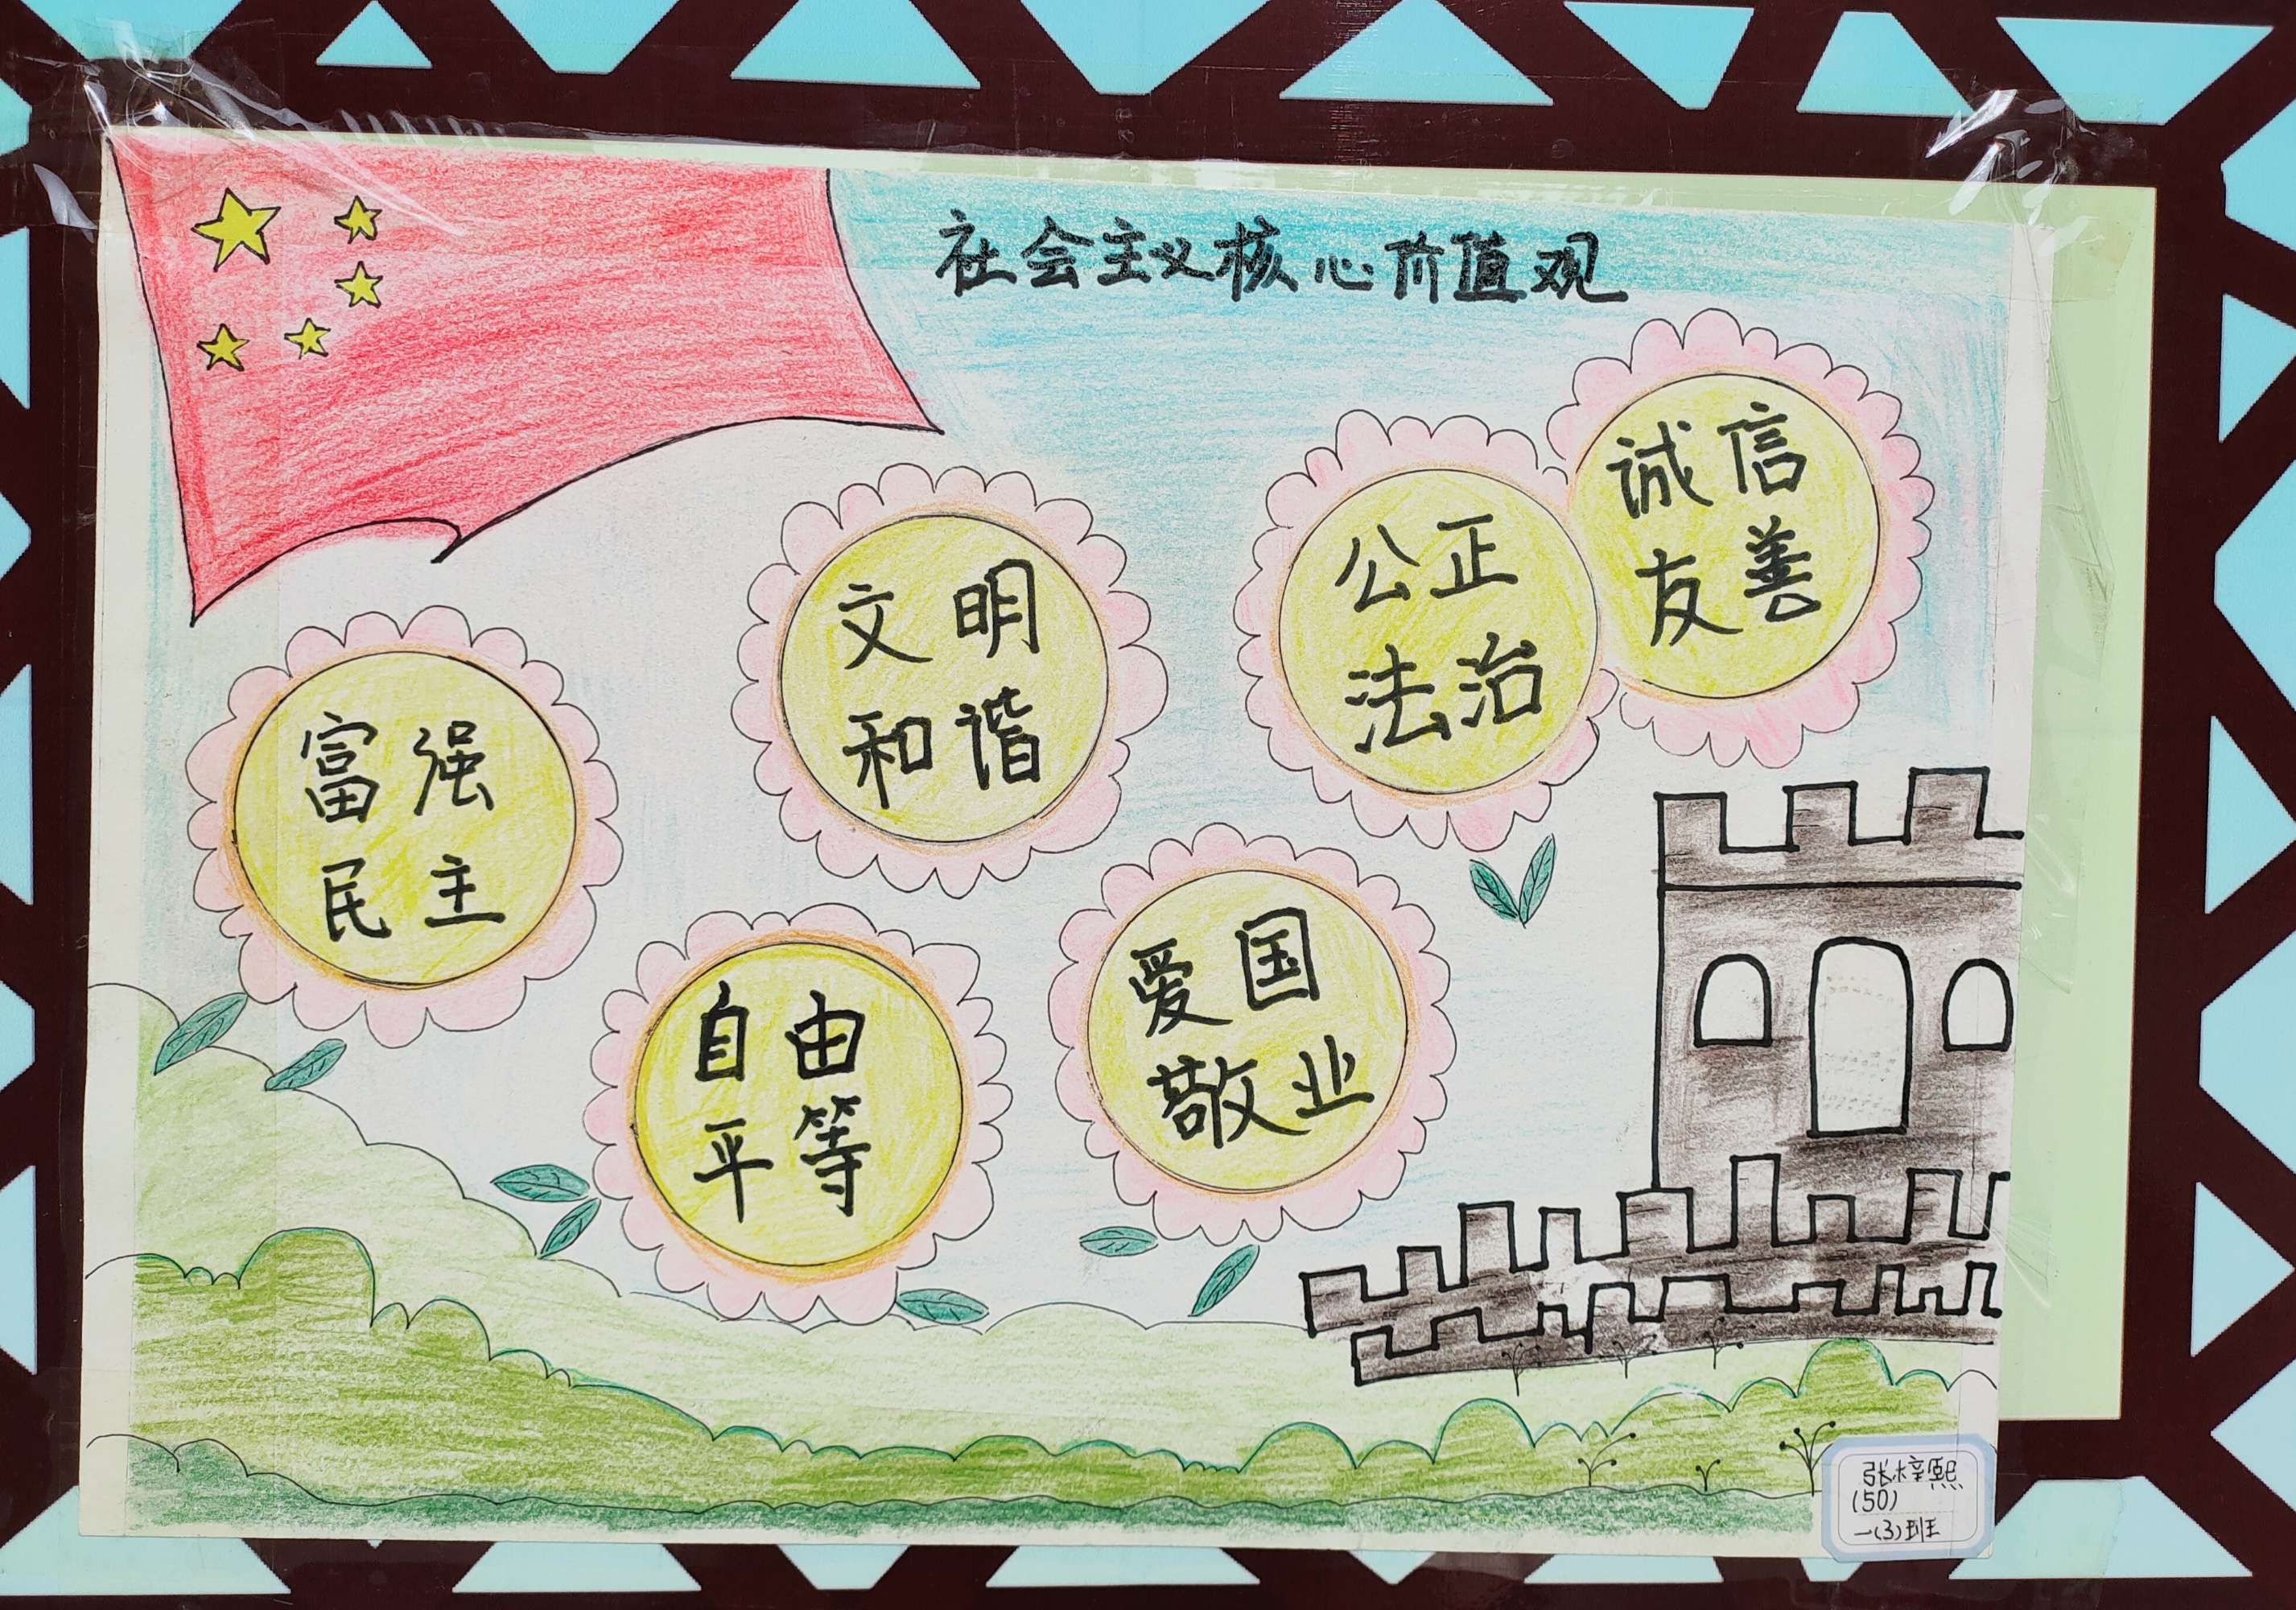 社会主义核心价值观
富强
民主
文明
和谐
自由
平等
公正
法治
爱国
敬业
诚信
友善
张梓熙
(50)
一(3)班